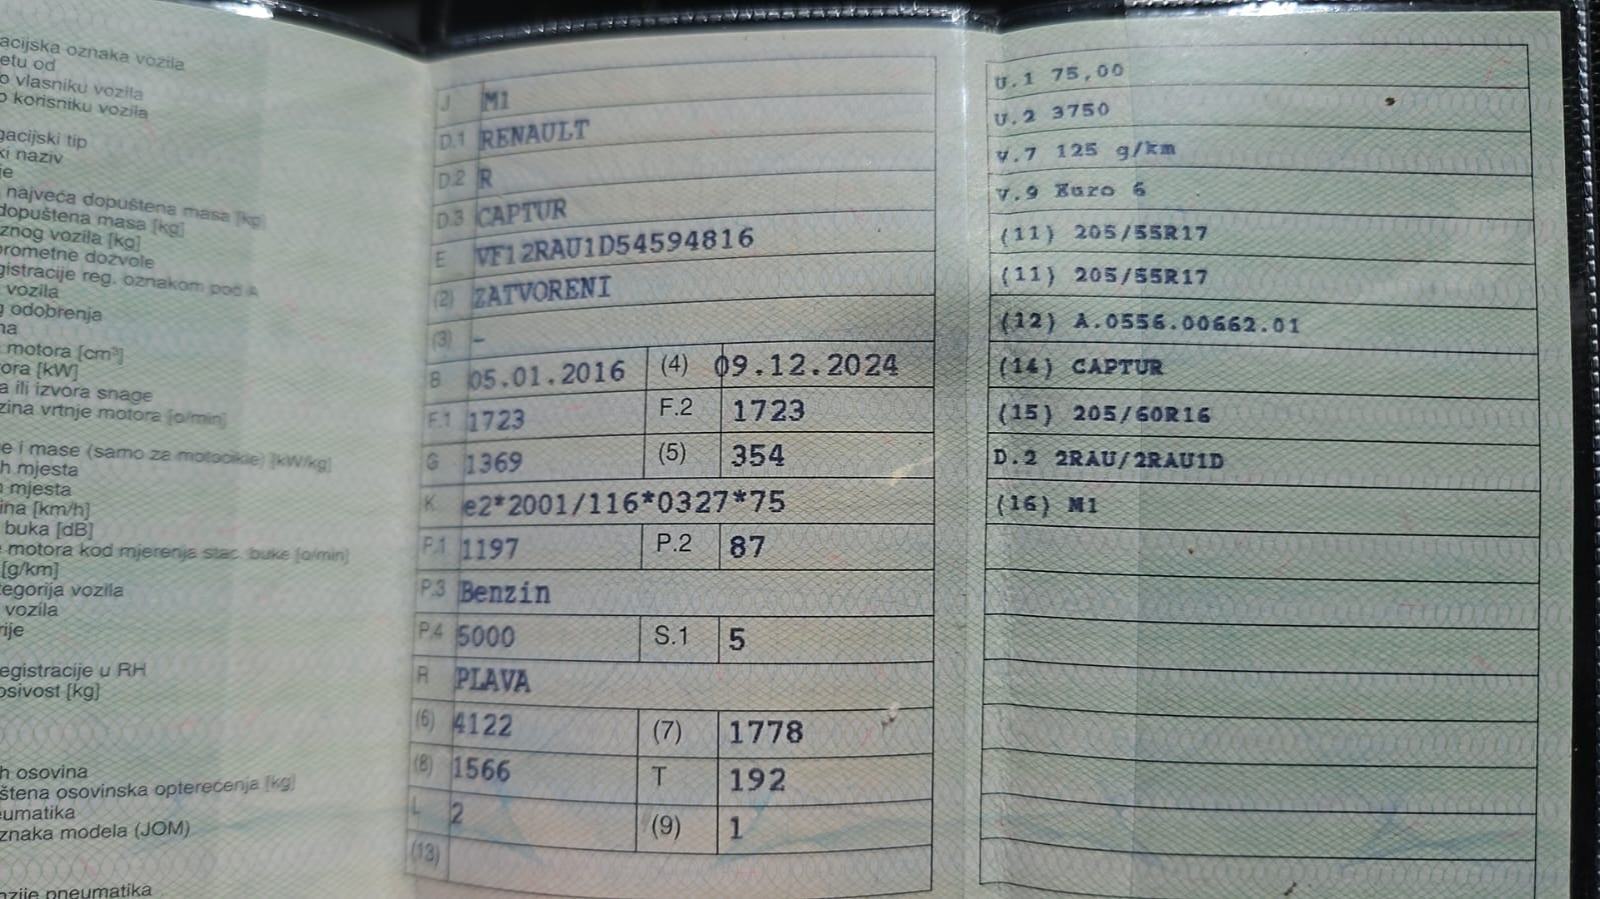 acijska oznaka vozila
etu od
o vlasniku vozila
o korisniku vozila
gacijski tip
ki naziv
je
najveća dopuštena masa [kg]
dopuštena masa [kg]
znog vozila [kg]
prometne dozvole
gistracije reg. oznakom pod A
vozila
g odobrenja
na
motora [cm³]
ora [kW]
a ili izvora snage
zina vrtnje motora [o/min]
e i mase (samo za motocikle) [kW/kg]
h mjesta
n mjesta
ina [km/h]
buka [dB]
e motora kod mjerenja stac. buke [o/min]
[g/km]
tegorija vozila
vozila
rije
egistracije u RH
osivost [kg]
h osovina
štena osovinska opterećenja [kg]
eumatika
znaka modela (JOM)
nzije pneumatika
J M1
D.1 RENAULT
D.2 R
D.3 CAPTUR
E VF12RAU1D54594816
(2) ZATVORENI
(3) -
B 05.01.2016 (4) 09.12.2024
F.1 1723 F.2 1723
G 1369 (5) 354
K e2*2001/116*0327*75
P.1 1197 P.2 87
P.3 Benzin
P.4 5000 S.1 5
R PLAVA
(6) 4122 (7) 1778
(8) 1566 T 192
L 2 (9) 1
(13)
U.1 75,00
U.2 3750
V.7 125 g/km
V.9 Euro 6
(11) 205/55R17
(11) 205/55R17
(12) A.0556.00662.01
(14) CAPTUR
(15) 205/60R16
D.2 2RAU/2RAU1D
(16) M1